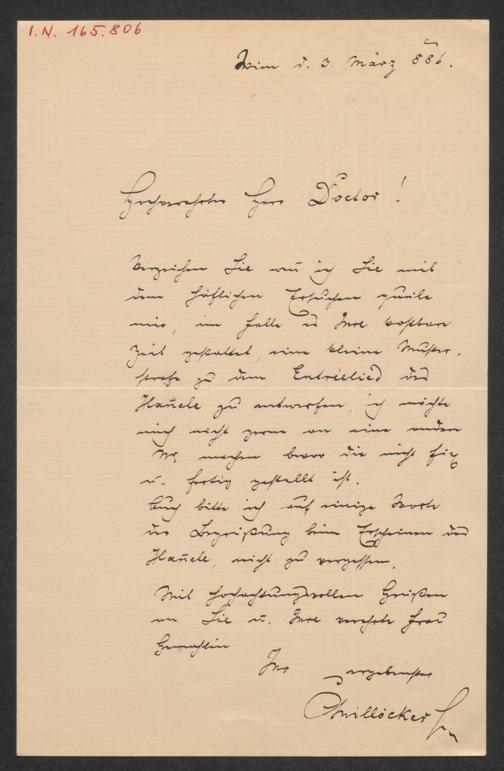 I.N. 165.806
Wien d. 3. März 886.
Hochverehrter Herr Doctor!
Verzeihen Sie wen̅ ich Sie mit
dem höflichen Ersuchen quäle
mir, im Falle es Ihre kostbare
Zeit gestattet, eine kleine Muster-
strofe zu dem Entréelied des
Han̅ele zu entwerfen, ich möchte
mich nicht gerne an eine andere
Nr. machen bevor die nicht fix
u. fertig gestellt ist.
Auch bitte ich auf einige Worte
der Begrüßung beim Erscheinen des
Han̅ele, nicht zu vergessen.
Mit hochachtungsvollen Grüßen
an Sie u. Ihre verehrte Frau
Gemahlin
Ihr ergebenster
CMillöcker